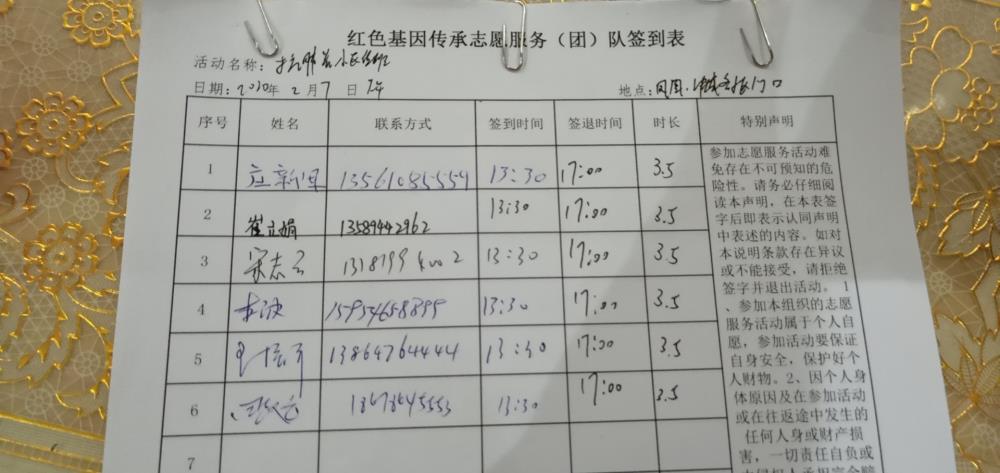 红色基因传承志愿服务（团）队签到表
活动名称：
日期：2020年 2 月 7 日
地点：门口
序号 姓名 联系方式 签到时间 签退时间 时长 特别声明
1 13561085559 13:30 17:00 3.5
2 崔立娟 13589442962 13:30 17:00 3.5
3 宋志云 13:30 17:00 3.5
4 15954658899 13:30 17:00 3.5
5 13864764444 13:30 17:00 3.5
6 13:30 17:00 3.5
7
参加志愿服务活动难
免存在不可预知的危
险性。请务必仔细阅
读本声明，在本表签
字后即表示认同声明
中表述的内容。如对
本说明条款存在异议
或不能接受，请拒绝
签字并退出活动。 1
、参加本组织的志愿
服务活动属于个人自
愿，参加活动要保证
自身安全，保护好个
人财物。2、因个人身
体原因及在参加活动
或在往返途中发生的
任何人身或财产损
害，一切责任自负或